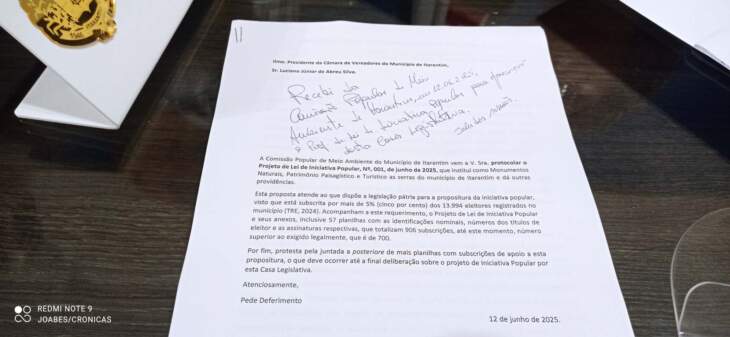 Ilmo. Presidente da Câmara de Vereadores do Município de Itarantim,
Sr. Luciano Júnior de Abreu Silva.
Recebi da
Comissão Popular de Meio
Ambiente de Itarantim, em 12.06.2025,
o Proj. de Lei de Iniciativa Popular para
desta Casa Legislativa.
A Comissão Popular de Meio Ambiente do Município de Itarantim vem a V. Sra. protocolar o
Projeto de Lei de Iniciativa Popular, Nº. 001, de junho de 2025, que institui como Monumentos
Naturais, Patrimônio Paisagístico e Turístico as serras do município de Itarantim e dá outras
providências.
Esta proposta atende ao que dispõe a legislação pátria para a propositura da iniciativa popular,
visto que está subscrita por mais de 5% (cinco por cento) dos 13.994 eleitores registrados no
município (TRE, 2024). Acompanham a este requerimento, o Projeto de Lei de Iniciativa Popular
e seus anexos, inclusive 57 planilhas com as identificações nominais, números dos títulos de
eleitor e as assinaturas respectivas, que totalizam 906 subscrições, até este momento, número
superior ao exigido legalmente, que é de 700.
Por fim, protesta pela juntada a posteriore de mais planilhas com subscrições de apoio a esta
propositura, o que deve ocorrer até a final deliberação sobre o projeto de Iniciativa Popular por
esta Casa Legislativa.
Atenciosamente,
Pede Deferimento
12 de junho de 2025.
REDMI NOTE 9
JOABES/CRONICAS